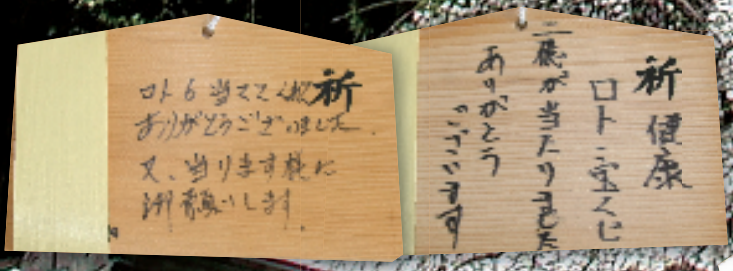 祈
ロト6当ててくれて
ありがとうございました
又、当ります様に
御願いします
祈 健康
ロト宝くじ
二億が当たりました
ありがとう
ございます